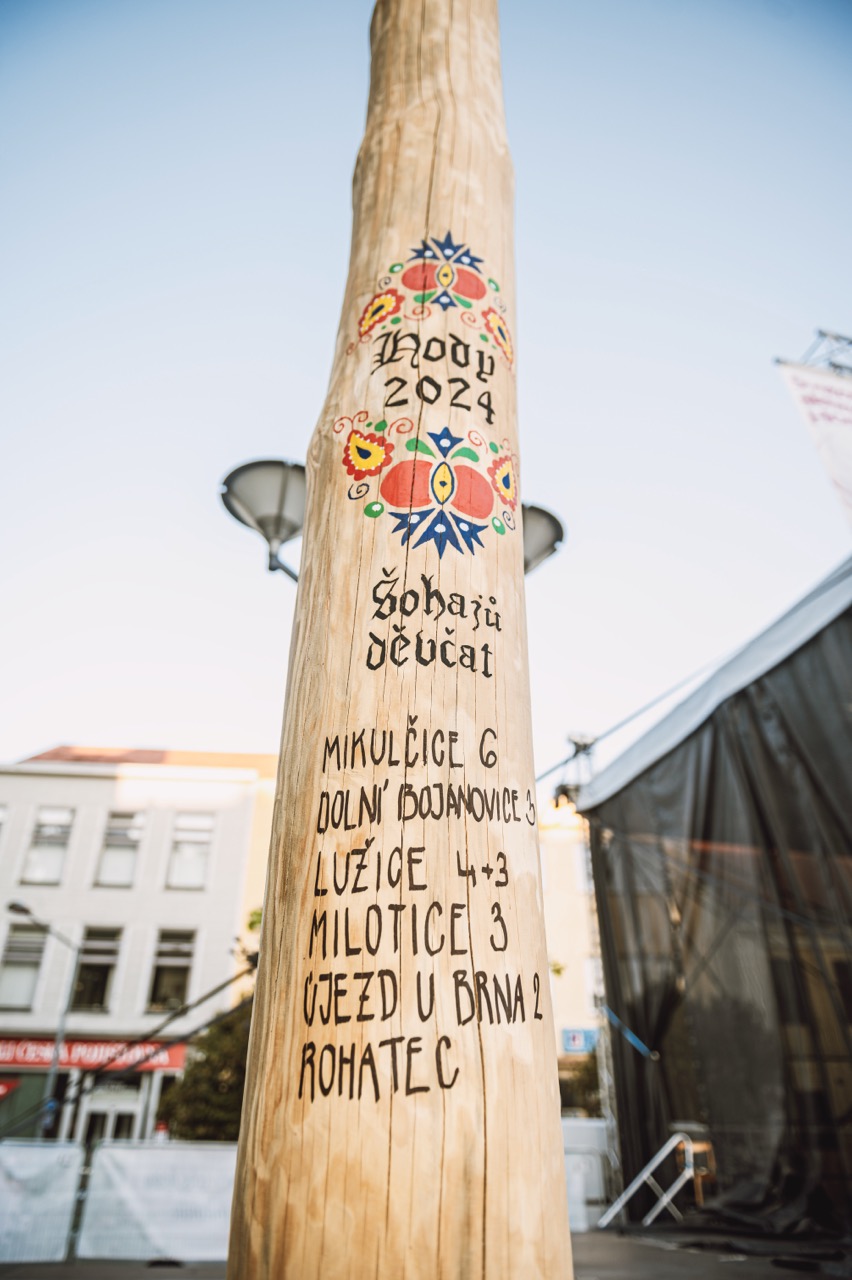 Hody
2024
Šohajů
děvčat
MIKULČICE 6
DOLNÍ BOJANOVICE 3
LUŽICE 4+3
MILOTICE 3
ÚJEZD U BRNA 2
ROHATEC
ČESKÁ POJIŠŤOVNA